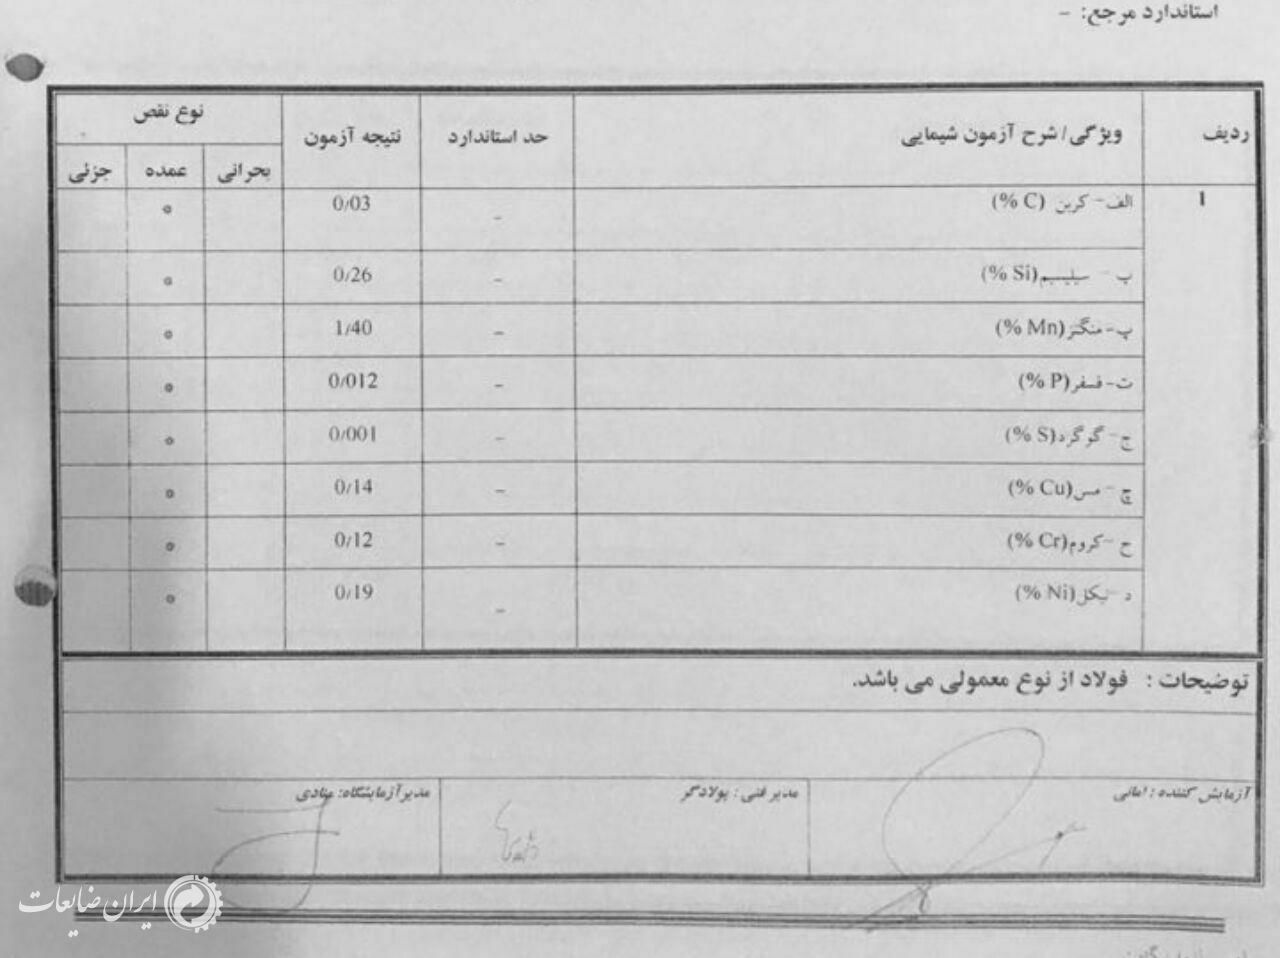 استاندارد مرجع: -
ردیف ویژگی/ شرح آزمون شیمیایی حد استاندارد نتیجه آزمون نوع نقص
بحرانی عمده جزئی
1 الف- کربن (C %) - 0/03 °
ب - سیلیسیم(Si %) - 0/26 °
پ-منگنز(Mn %) - 1/40 °
ت-فسفر(P %) - 0/012 °
ج- گوگرد(S %) - 0/001 °
چ - مس(Cu %) - 0/14 °
ح -کروم(Cr %) - 0/12 °
د -نیکل(Ni %) - 0/19 °
توضیحات : فولاد از نوع معمولی می باشد.
آزمایش کننده : امانی مدیر فنی : پولادگر مدیرآزمایشگاه: منادی
ایران ضایعات